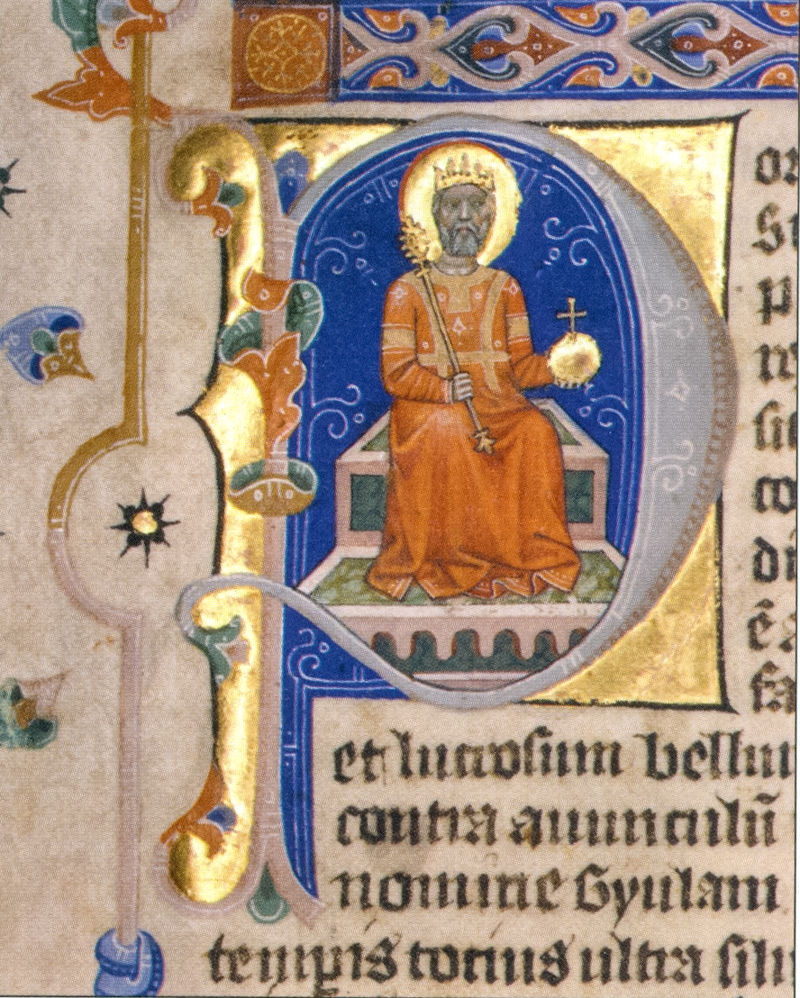 P or
St
p
co
di
et lucrosum bellu
contra auunculū
nomine Gyulam
tempis totius ultra silu